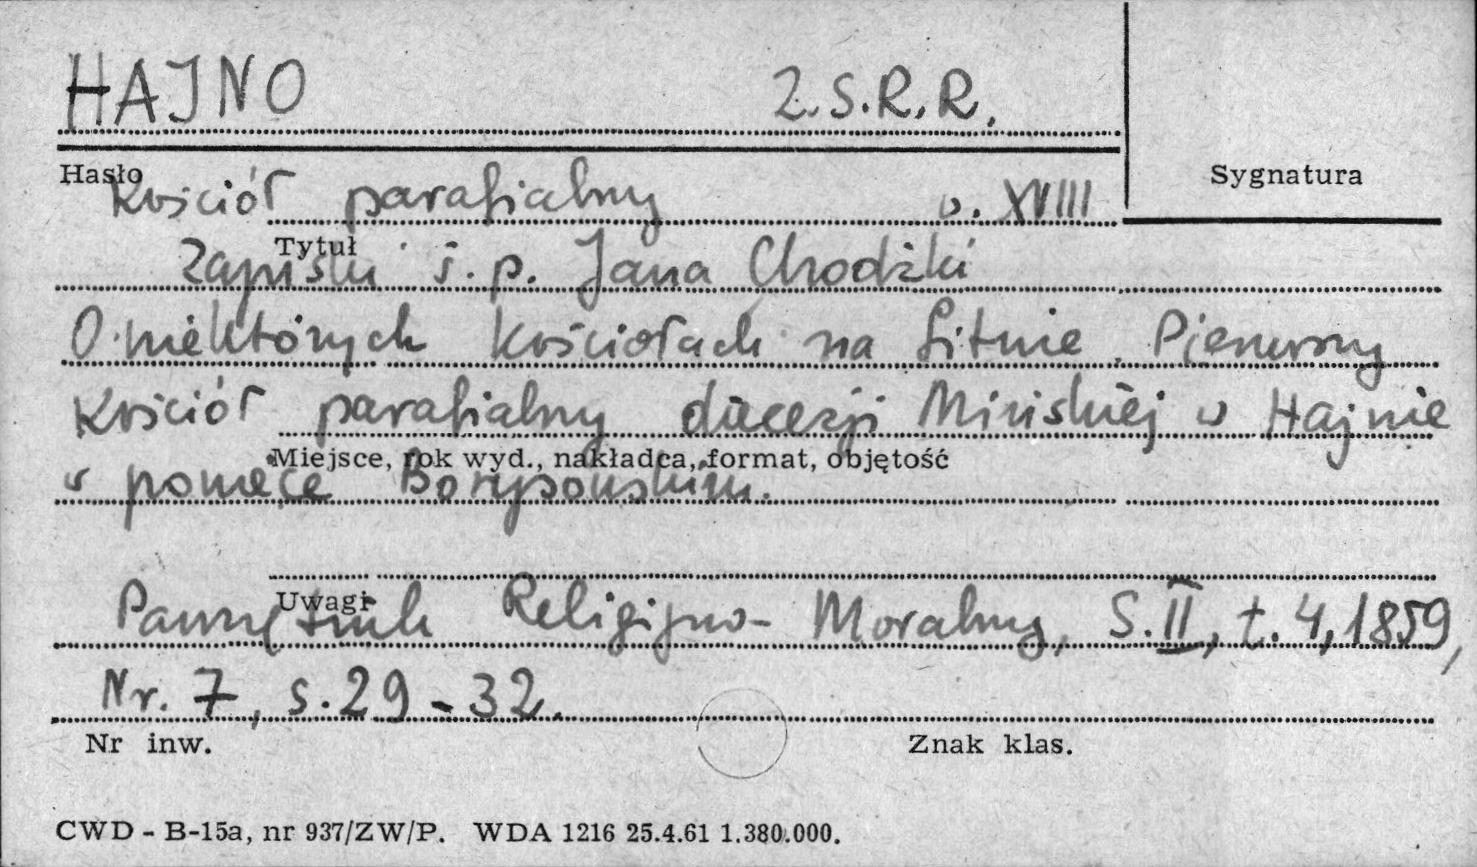 HAJNO Z.S.R.R.
Hasło
Sygnatura
Kościół parafialny w. XVIII
Tytuł
Zapiski ś.p. Jana Chodźki
O niektórych kościołach na Litwie. Pierwszy
Kościół parafialny diecezji Mińskiej w Hajnie
Miejsce, rok wyd., nakładca, format, objętość
w powiecie Borysowskim.
Uwagi
Pamiętnik Religijno-Moralny, S. II, t. 4, 1859,
Nr. 7, s. 29-32.
Nr inw. Znak klas.
CWD - B-15a, nr 937/ZW/P. WDA 1216 25.4.61 1.380.000.